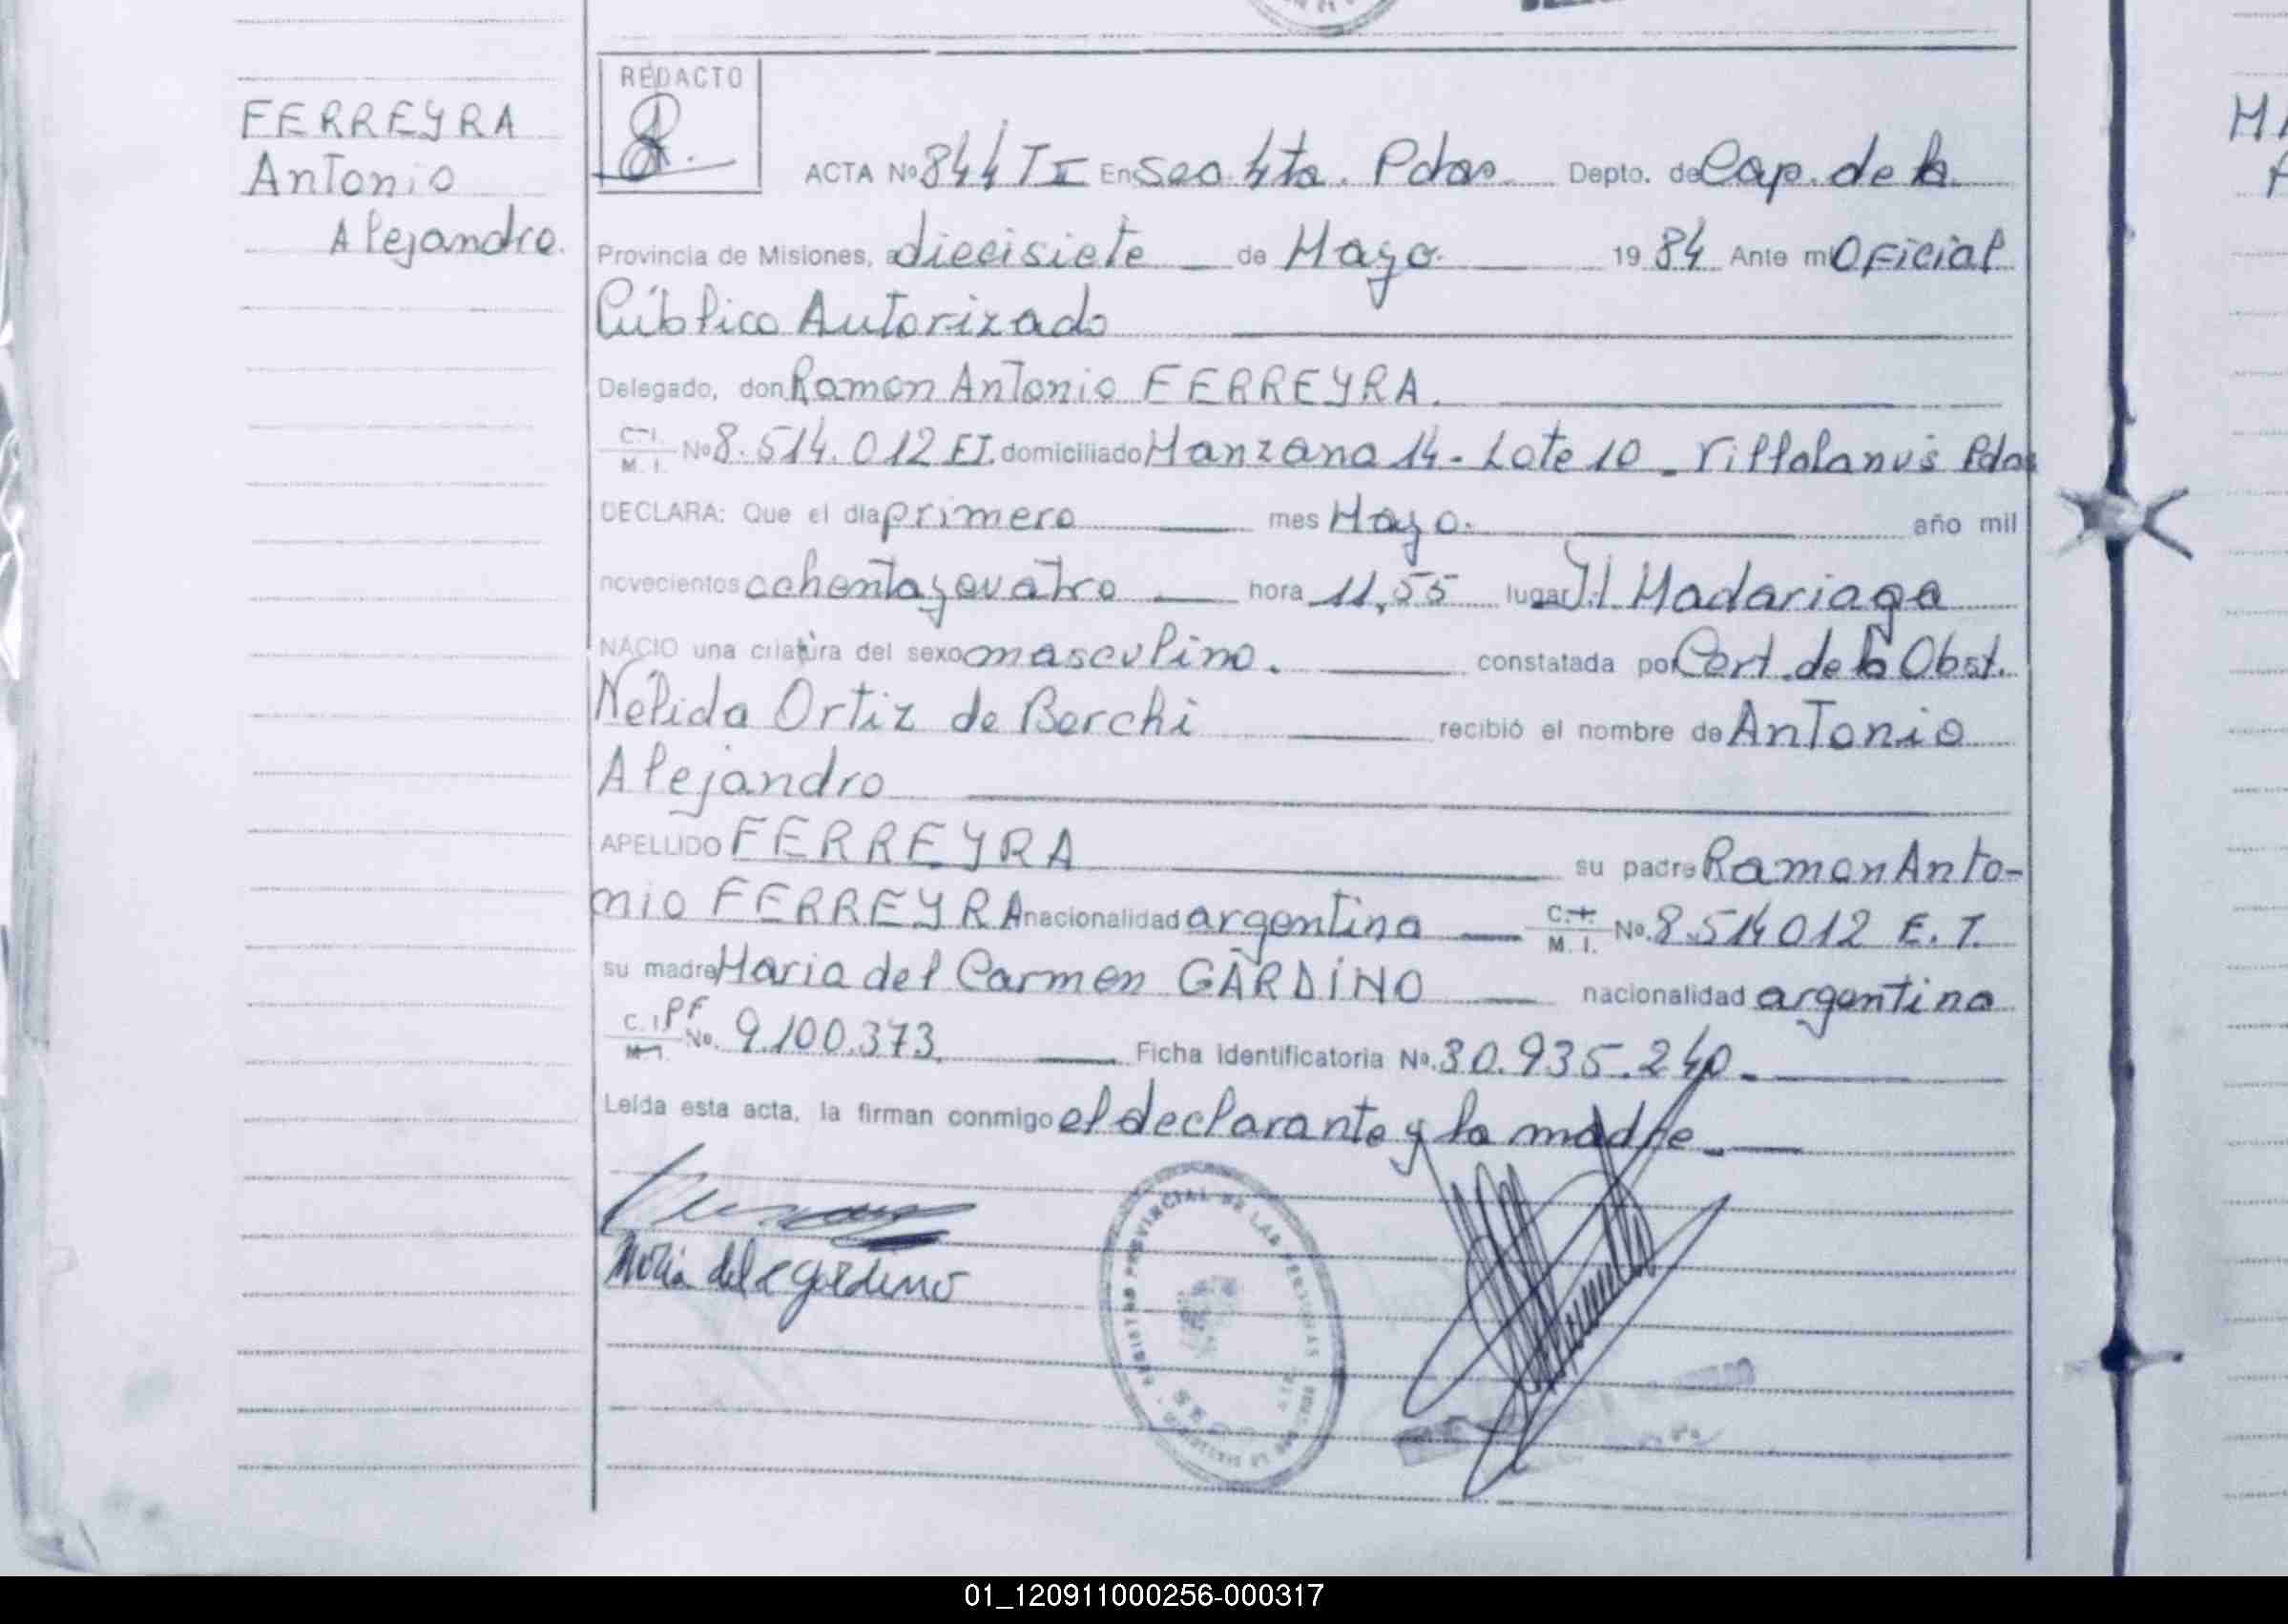 FERREYRA
Antonio
Alejandro.
REDACTO
ACTA Nº 844 T II En Sec. 4ta. Pdas Depto. de Cap. de la
Provincia de Misiones, a diecisiete de Mayo. 19 84 Ante mi Oficial
Público Autorizado
Delegado, don Ramon Antonio FERREYRA.
C.I. M. I. Nº 8.514.012 EI. domiciliado Manzana 14 - Lote 10 - Villalanús Pdas
DECLARA: Que el día primero mes Mayo. año mil
novecientos ochenta y cuatro hora 11,55 lugar Madariaga
NACIO una criatura del sexo masculino. constatada por Cert. de la Obst.
Nélida Ortiz de Berchi recibió el nombre de Antonio
Alejandro
APELLIDO FERREYRA su padre Ramon Anto-
nio FERREYRA nacionalidad argentina C.I. M. I. Nº. 8.514012 E. T.
su madre Maria del Carmen GARDINO nacionalidad argentina
C. I. PF M.I. No. 9.100.373. Ficha identificatoria Nº. 30.935.240.
Leída esta acta, la firman conmigo el declarante y la madre
Maria del C Gardino
REGISTRO PROVINCIAL DE LAS PERSONAS
01_120911000256-000317